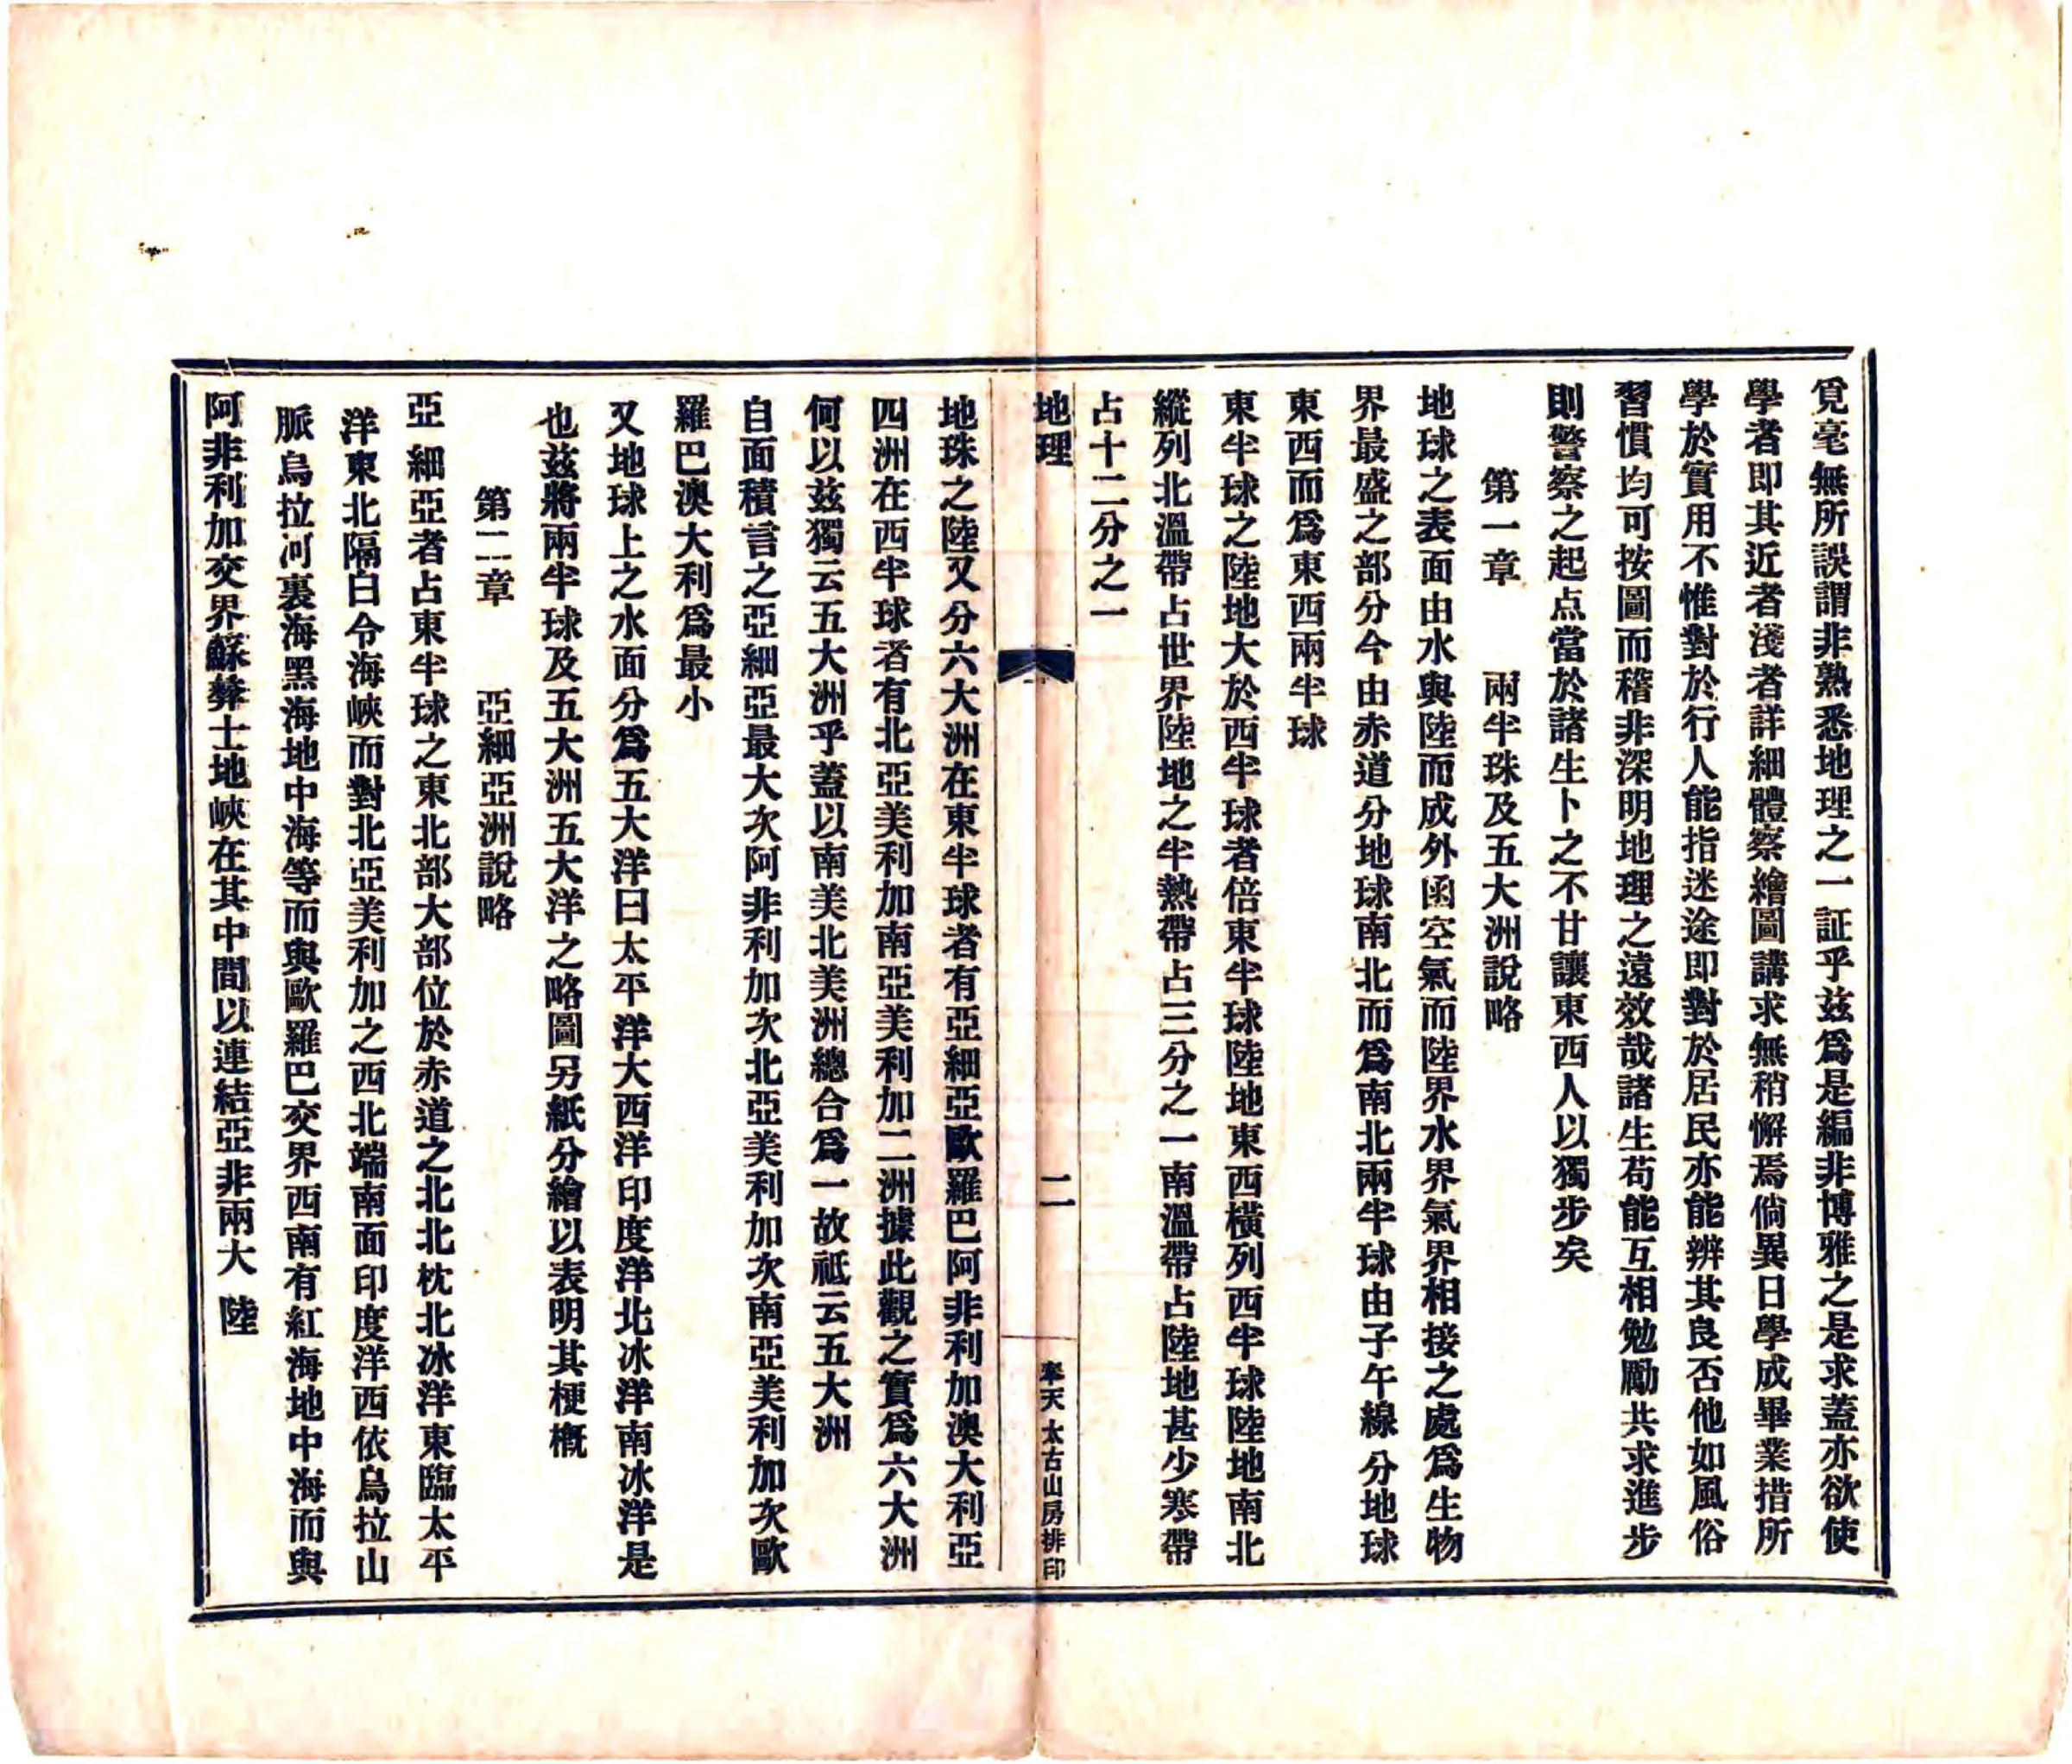 覓毫無所誤謂非熟悉地理之一証乎茲爲是編非博雅之是求蓋亦欲使
學者即其近者淺者詳細體察繪圖講求無稍懈焉倘異日學成畢業措所
學於實用不惟對於行人能指迷途即對於居民亦能辨其良否他如風俗
習慣均可按圖而稽非深明地理之遠效哉諸生苟能互相勉勵共求進步
則警察之起点當於諸生卜之不甘讓東西人以獨步矣
第一章 兩半珠及五大洲說略
地球之表面由水與陸而成外函空氣而陸界水界氣界相接之處爲生物
界最盛之部分今由赤道分地球南北而爲南北兩半球由子午線分地球
東西而爲東西兩半球
東半球之陸地大於西半球者倍東半球陸地東西橫列西半球陸地南北
縱列北溫帶占世界陸地之半熱帶占三分之一南溫帶占陸地甚少寒帶
占十二分之一
地理 二 奉天太古山房排印
地珠之陸又分六大洲在東半球者有亞細亞歐羅巴阿非利加澳大利亞
四洲在西半球者有北亞美利加南亞美利加二洲據此觀之實爲六大洲
何以茲獨云五大洲乎蓋以南美北美洲總合爲一故祗云五大洲
自面積言之亞細亞最大次阿非利加次北亞美利加次南亞美利加次歐
羅巴澳大利爲最小
又地球上之水面分爲五大洋曰太平洋大西洋印度洋北冰洋南冰洋是
也茲將兩半球及五大洲五大洋之略圖另紙分繪以表明其梗概
第二章 亞細亞洲說略
亞細亞者占東半球之東北部大部位於赤道之北北枕北冰洋東臨太平
洋東北隔白令海峽而對北亞美利加之西北端南面印度洋西依烏拉山
脈烏拉河裏海黑海地中海等而與歐羅巴交界西南有紅海地中海而與
阿非利加交界蘇彝士地峽在其中間以連結亞非兩大陸